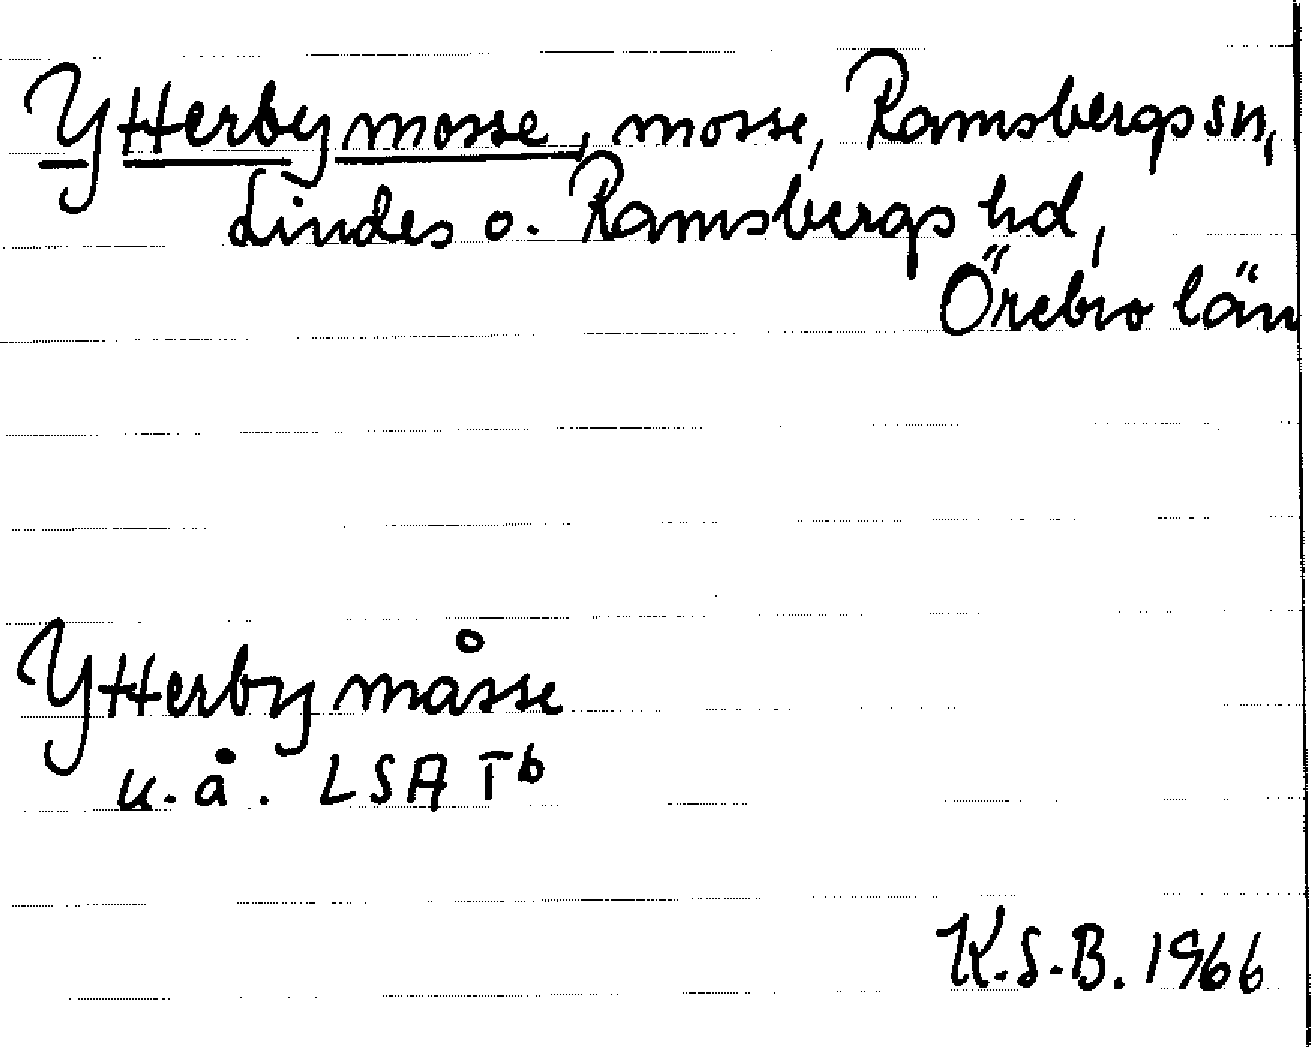 Ytterbymosse, mosse, Ramsbergs sn,
Lindes o. Ramsbergs hd,
Örebro län
Ytterbymåsse
u.å. LSA Tb
K.S.B. 1966